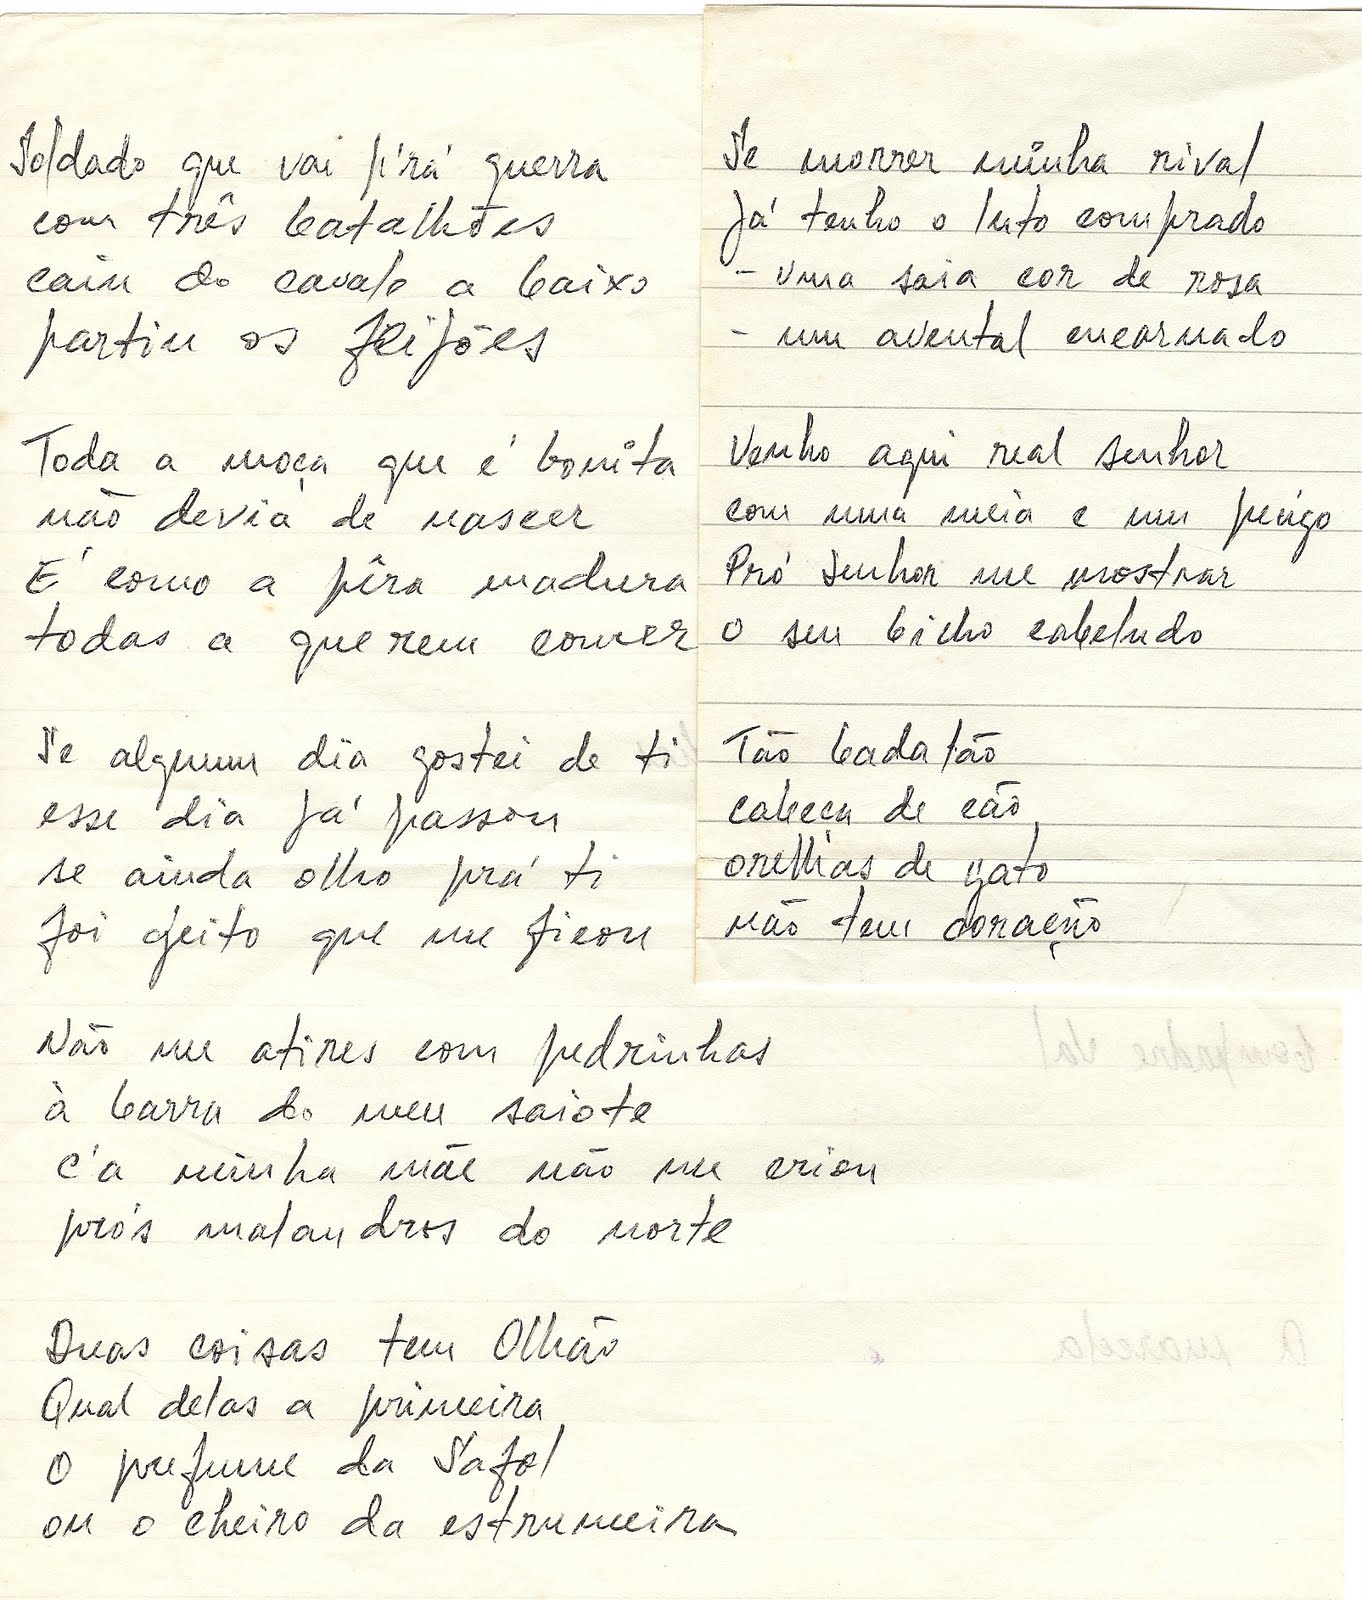 Soldado que vai p'rá guerra
com três batalhões
caiu do cavalo a baixo
partiu os feijões
Toda a moça que é bonita
não devia de nascer
É como a pêra madura
todas a querem comer
Se algum dia gostei de ti
esse dia já passou
se ainda olho prá ti
foi jeito que me ficou
Não me atires com pedrinhas
à barra do meu saiote
c'a minha mãe não me criou
prós malandros do norte
Duas coisas tem Olhão
Qual delas a primeira
O prefume da Safol
ou o cheiro da estrumeira
Se morrer minha rival
Já tenho o luto comprado
- uma saia cor de rosa
- um avental encarnado
Venho aqui real senhor
com uma meia e um peúgo
Pró Senhor me mostrar
o seu bicho cabeludo
Tão badalão
cabeça de cão
orelhas de gato
não tem coração
Compadre Val
A marcela